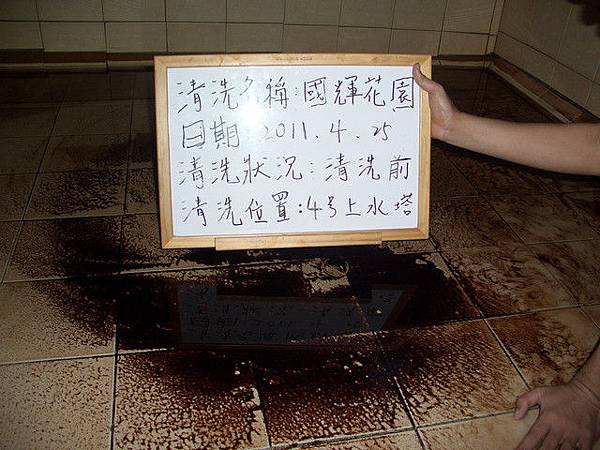 清洗名稱:國輝花園
日期:2011.4.25
清洗狀況:清洗前
清洗位置:4号上水塔